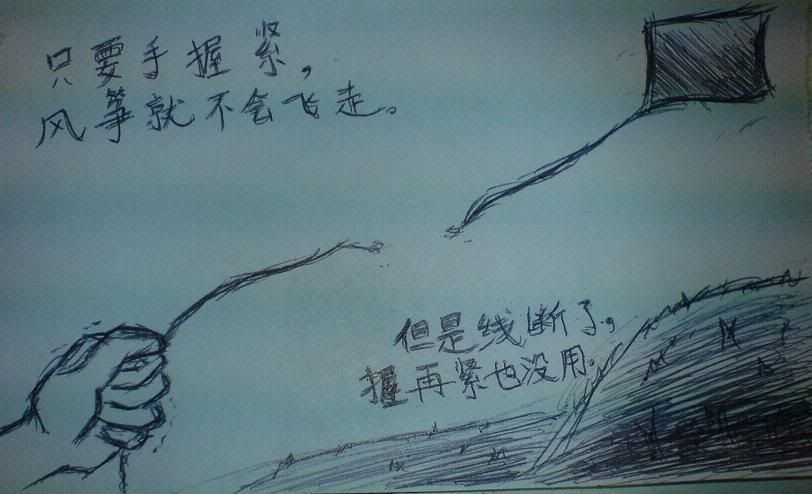 只要手握紧，
风筝就不会飞走。
但是线断了，
握再紧也没用。